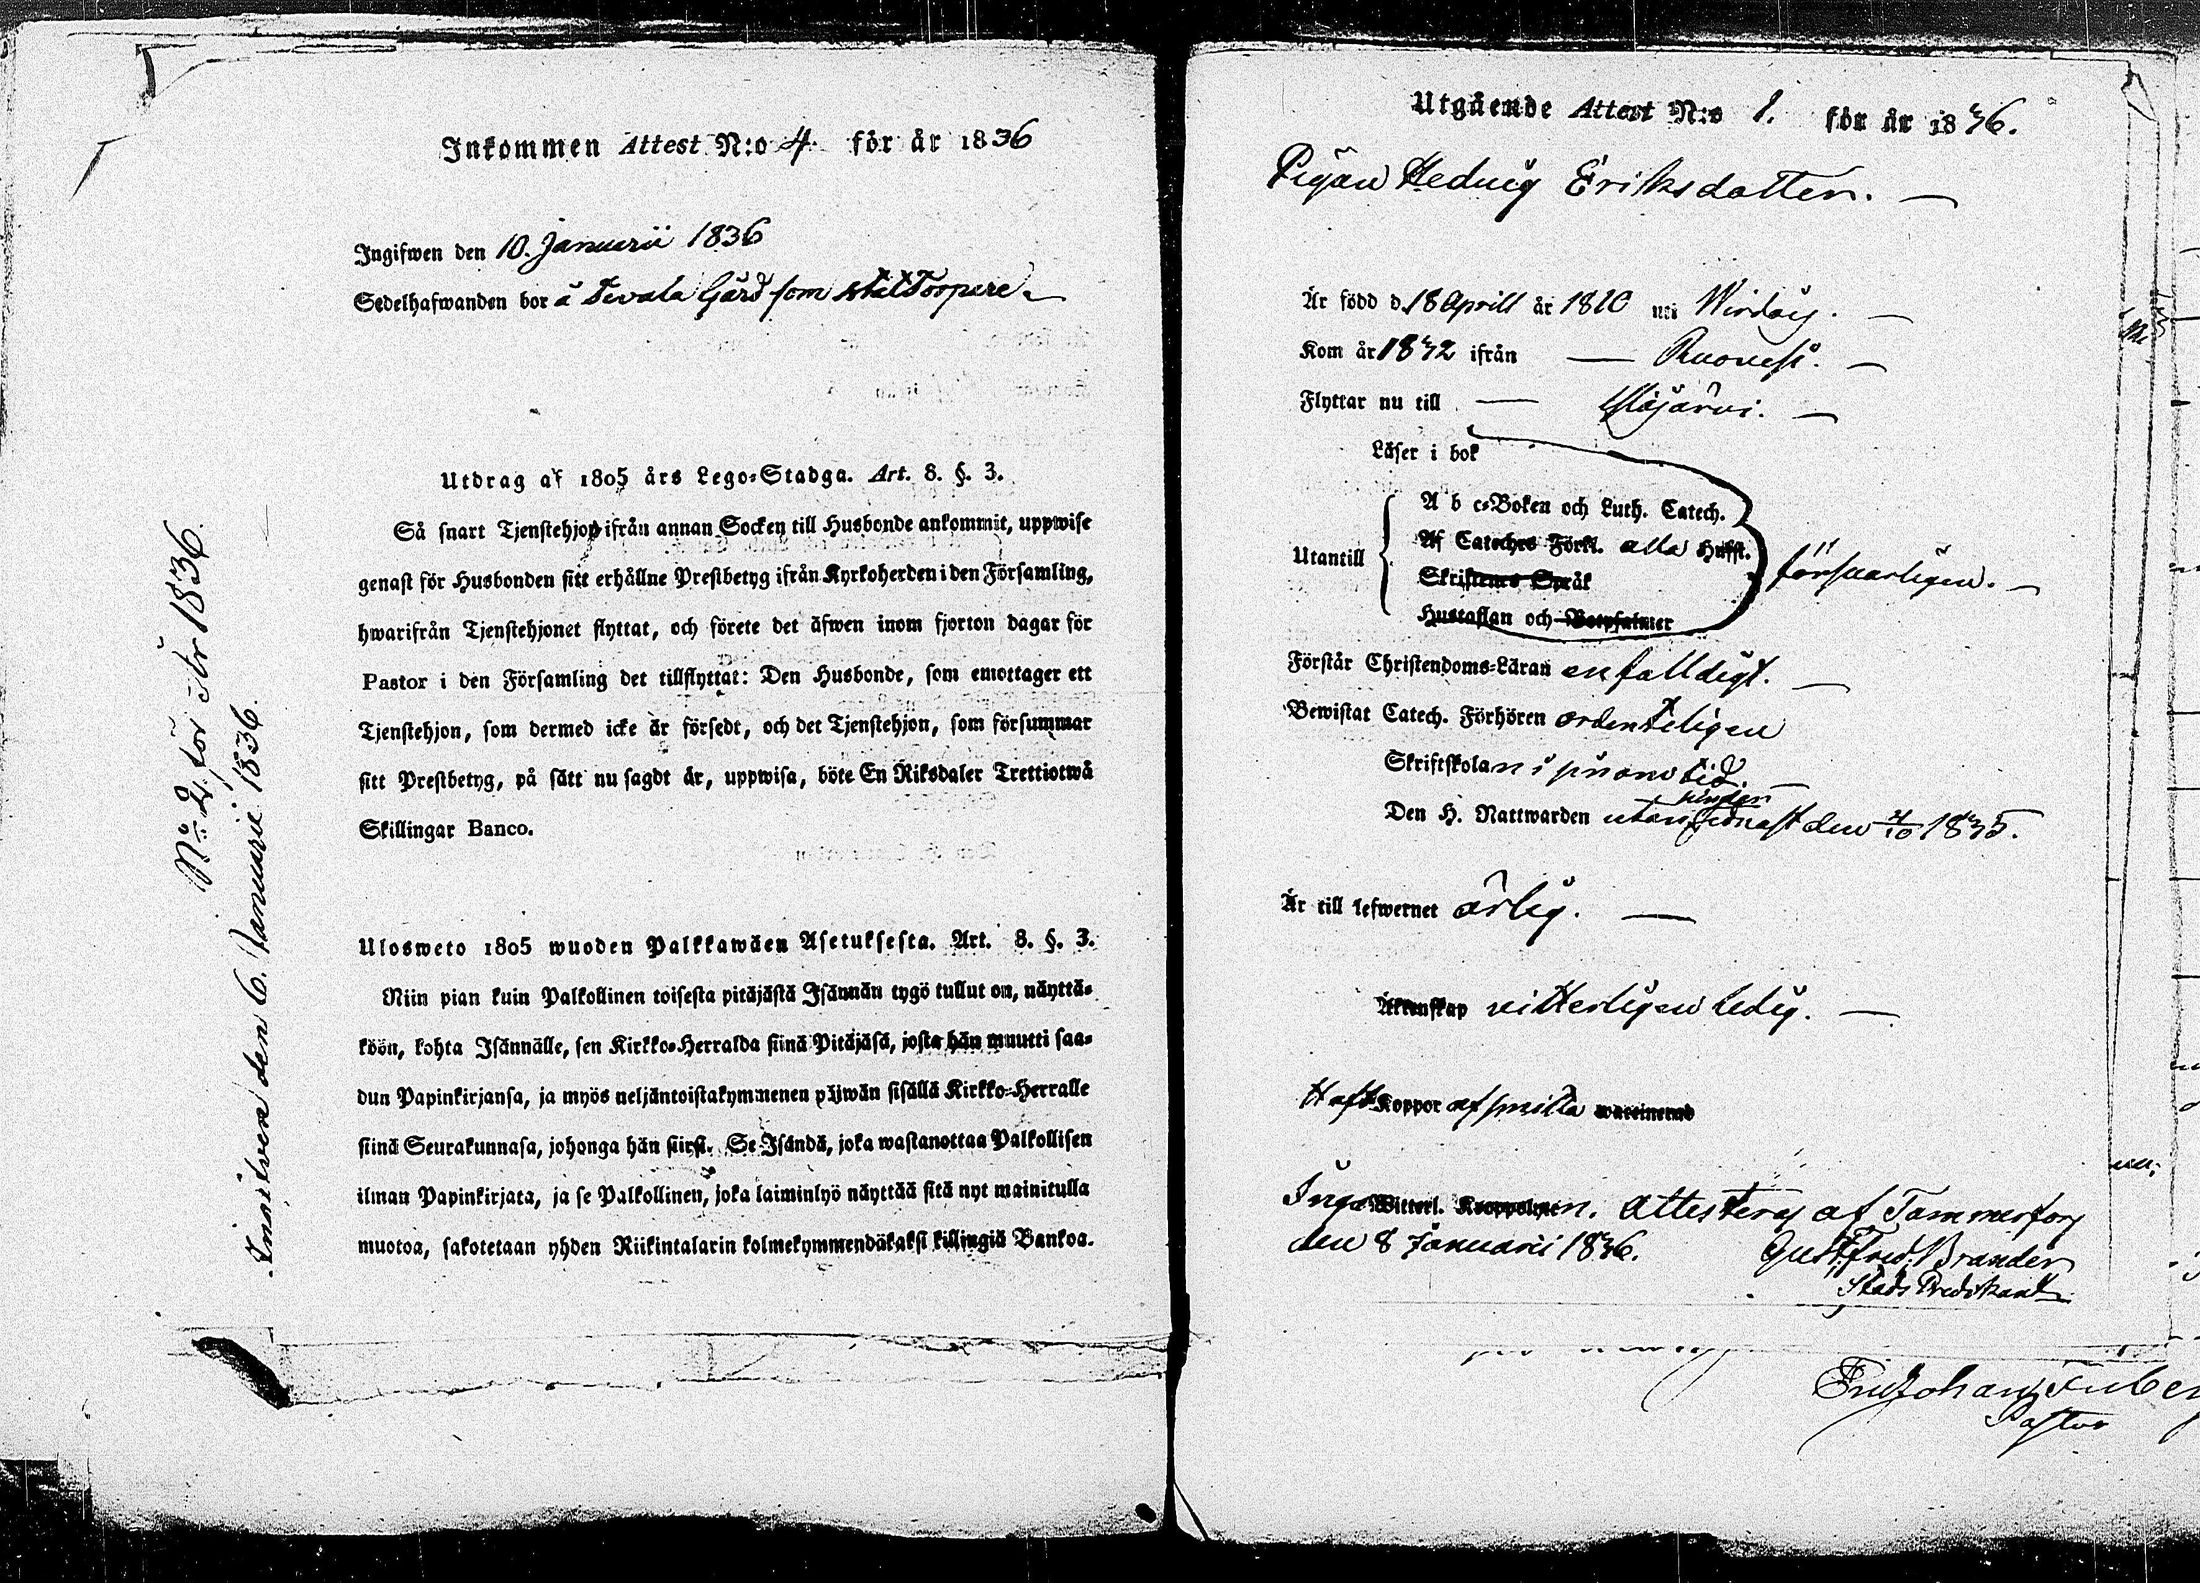 Inkommen Attest N:o 4. för år 1836
Ingifwen den 10. Januarii 1836
Sedelhafwanden bor å Tevala Gård som statTorpare
Utdrag af 1805 års Lego-Stadga. Art. 8. §. 3.
Så snart Tjenstehjon ifrån annan Socken till Husbonde ankommit, uppwise
genast för Husbonden sitt erhållne Prestbetyg ifrån Kyrkoherden i den Församling,
hwarifrån Tjenstehjonet flyttat, och förete det äfwen inom fjorton dagar för
Pastor i den Församling det tillflyttat: Den Husbonde, som emottager ett
Tjenstehjon, som dermed icke är försedt, och det Tjenstehjon, som försummar
sitt Prestbetyg, på sätt nu sagdt är, uppwisa, böte En Riksdaler Trettiotwå
Skillingar Banco.
Ulosweto 1805 wuoden Palkkawäen Asetuksesta. Art. 8. §. 3.
Niin pian kuin Palkollinen toisesta pitäjästä Isännän tygö tullut on, näyttä-
köön, kohta Isännälle, sen Kirkko-Herralda siinä Pitäjäsä, josta hän muutti saa-
dun Papinkirjansa, ja myös neljäntoistakymmenen päiwän sisällä Kirkko-Herralle
siinä Seurakunnasa, johonga hän siirst. Se Isändä, joka wastanottaa Palkollisen
ilman Papinkirjata, ja se Palkollinen, joka laiminlyö näyttää sitä nyt mainitulla
muotoa, sakotetaan yhden Riikintalarin kolmekymmendäkaksi killingiä Bankoa.
No 2. för År 1836.
den 6. Januarii 1836.
Utgående Attest N:o 1. för år 1836.
Pigan Hedvig Eriksdotter.
Är född d. 18 Aprill år 1810 uti Wirdois.
Kom år 1832 ifrån Ruovesi.
Flyttar nu till Ylöjärvi.
Läser i bok
Utantill
A b c-Boken och Luth. Catech.
Af Cateches Förkl. alla Hufst.
Skriftenes Språk
Hustaflan och Botpsalmer
försvarligen.
Förstår Christendoms-Läran enfalldigt.
Bewistat Catech. Förhören ordenteligen
Skriftskolan i sinom tid.
Den H. Nattwarden utan hinder senast den 4/10 1835.
Är till lefwernet ärlig.
Äktenskap vitterligen ledig.
Haft Koppor af smitta waccinerad
Inga Witterl. Kroppslyten. Attesteras af Tammerfors
den 8 Januarii 1836. Gust. Fred. Brander
Stads Predikant
Pastor